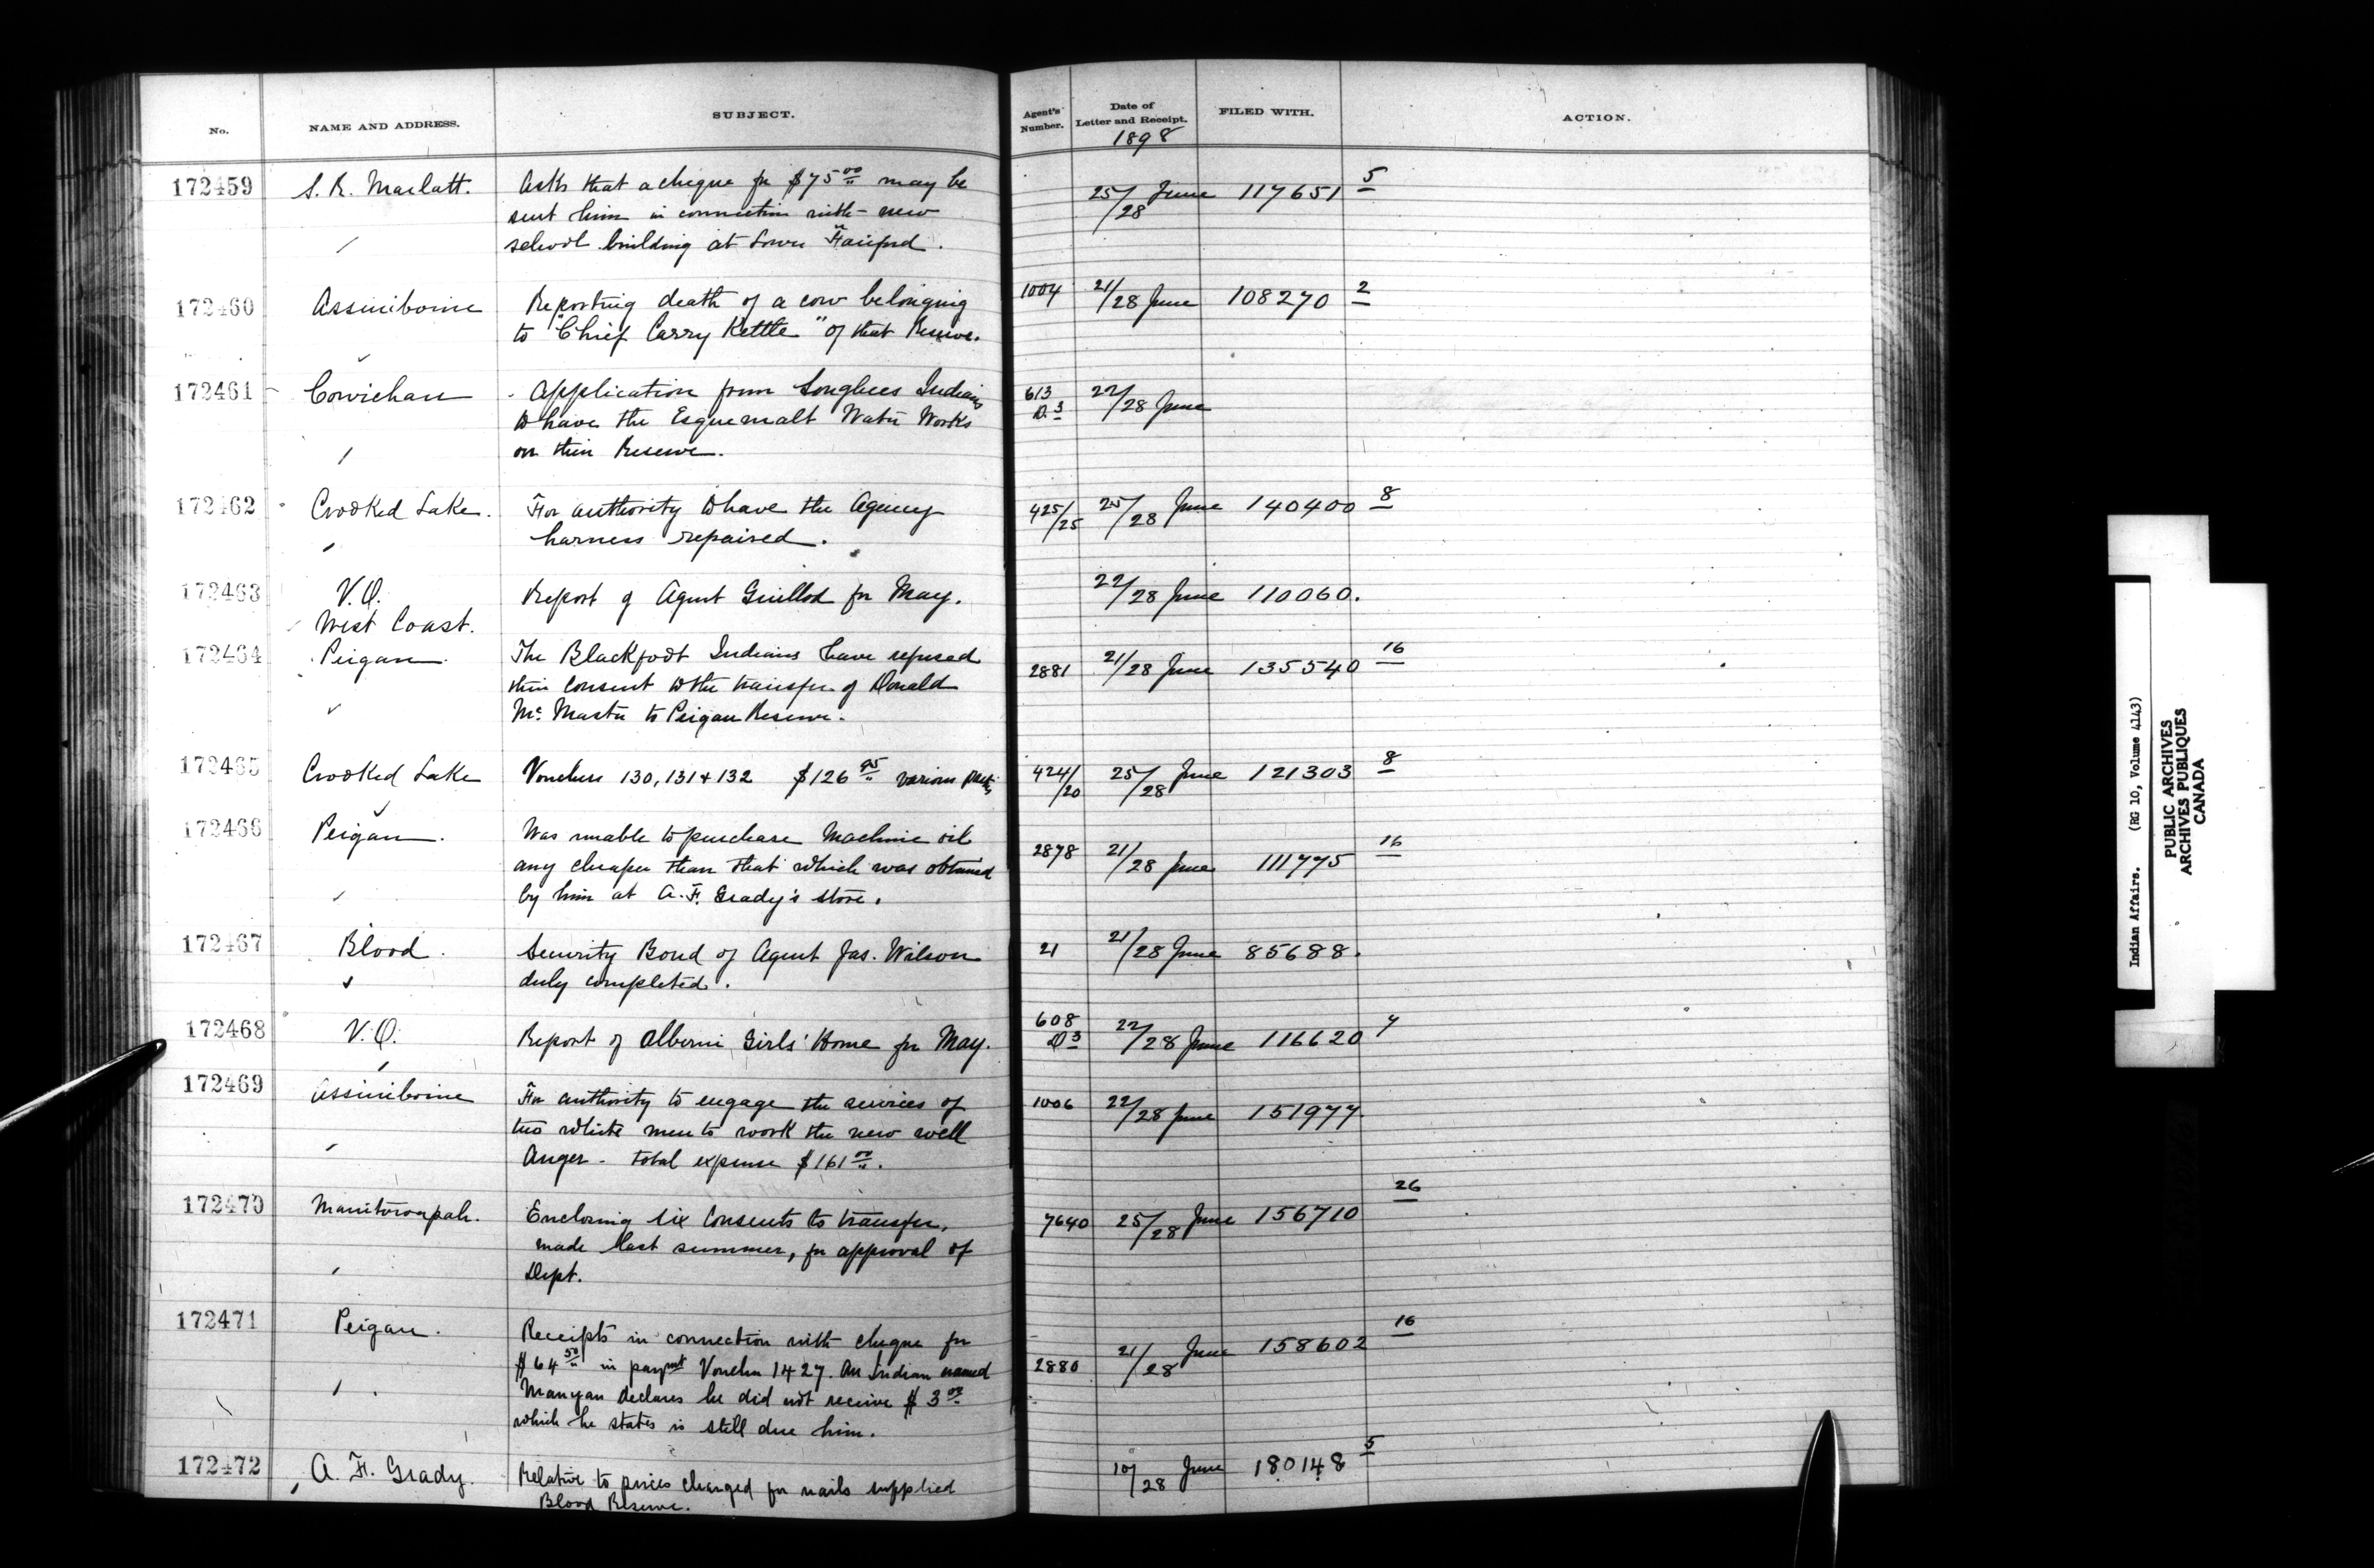 No. NAME AND ADDRESS. SUBJECT. Agent's Number. Date of Letter and Receipt. FILED WITH. ACTION.
1898
172459 S. R. Marlatt. Asks that a cheque for $75 00 may be 25/28 June 117651 5
sent him in connection with new
school building at Lower Fairford.
172460 Assiniboine Reporting death of a cow belonging 1004 21/28 June 108270 2
to "Chief Carry Kettle" of that Reserve.
172461 Cowichan Application from Songhees Indians 613 D.3 22/28 June
to have the Esquemalt Water Works
on their Reserve.
172462 Crooked Lake. For authority to have the Agency 425/25 25/28 June 140400 8
harness repaired.
172463 V.O. Report of Agent Guillod for May. 22/28 June 110060.
West Coast.
172464 Peigan. The Blackfoot Indians have refused 2881 21/28 June 135540 16
their consent to the transfer of Donald
Mc Master to Peigan Reserve.
172465 Crooked Lake Vouchers 130, 131 & 132 $126 95 various parties 424/20 25/28 June 121303 8
172466 Peigan. Was unable to purchase Machine oil 2878 21/28 June 111775 16
any cheaper than that which was obtained
by him at A. F. Grady's store.
172467 Blood. Security Bond of Agent Jas. Wilson 21 21/28 June 85688.
duly completed.
172468 V.O. Report of Alberni Girls' Home for May. 608 D3 22/28 June 116620 7
172469 Assiniboine For authority to engage the services of 1006 22/28 June 151977.
two white men to work the new well
Auger - total expense $161 00.
172470 Manitowapah. Enclosing six Consents to transfer, 7640 25/28 June 156710 26
made last summer, for approval of
Dept.
172471 Peigan. Receipts in connection with cheque for 2880 21/28 June 158602 16
$64 50 in paymt Voucher 1427. An Indian named
Manyan declares he did not receive $3 00
which he states is still due him.
172472 A. F. Grady. Relative to prices charged for nails supplied 10/28 June 180148 5
Blood Reserve.
Indian Affairs. (RG 10, Volume 4143)
PUBLIC ARCHIVES
ARCHIVES PUBLIQUES
CANADA